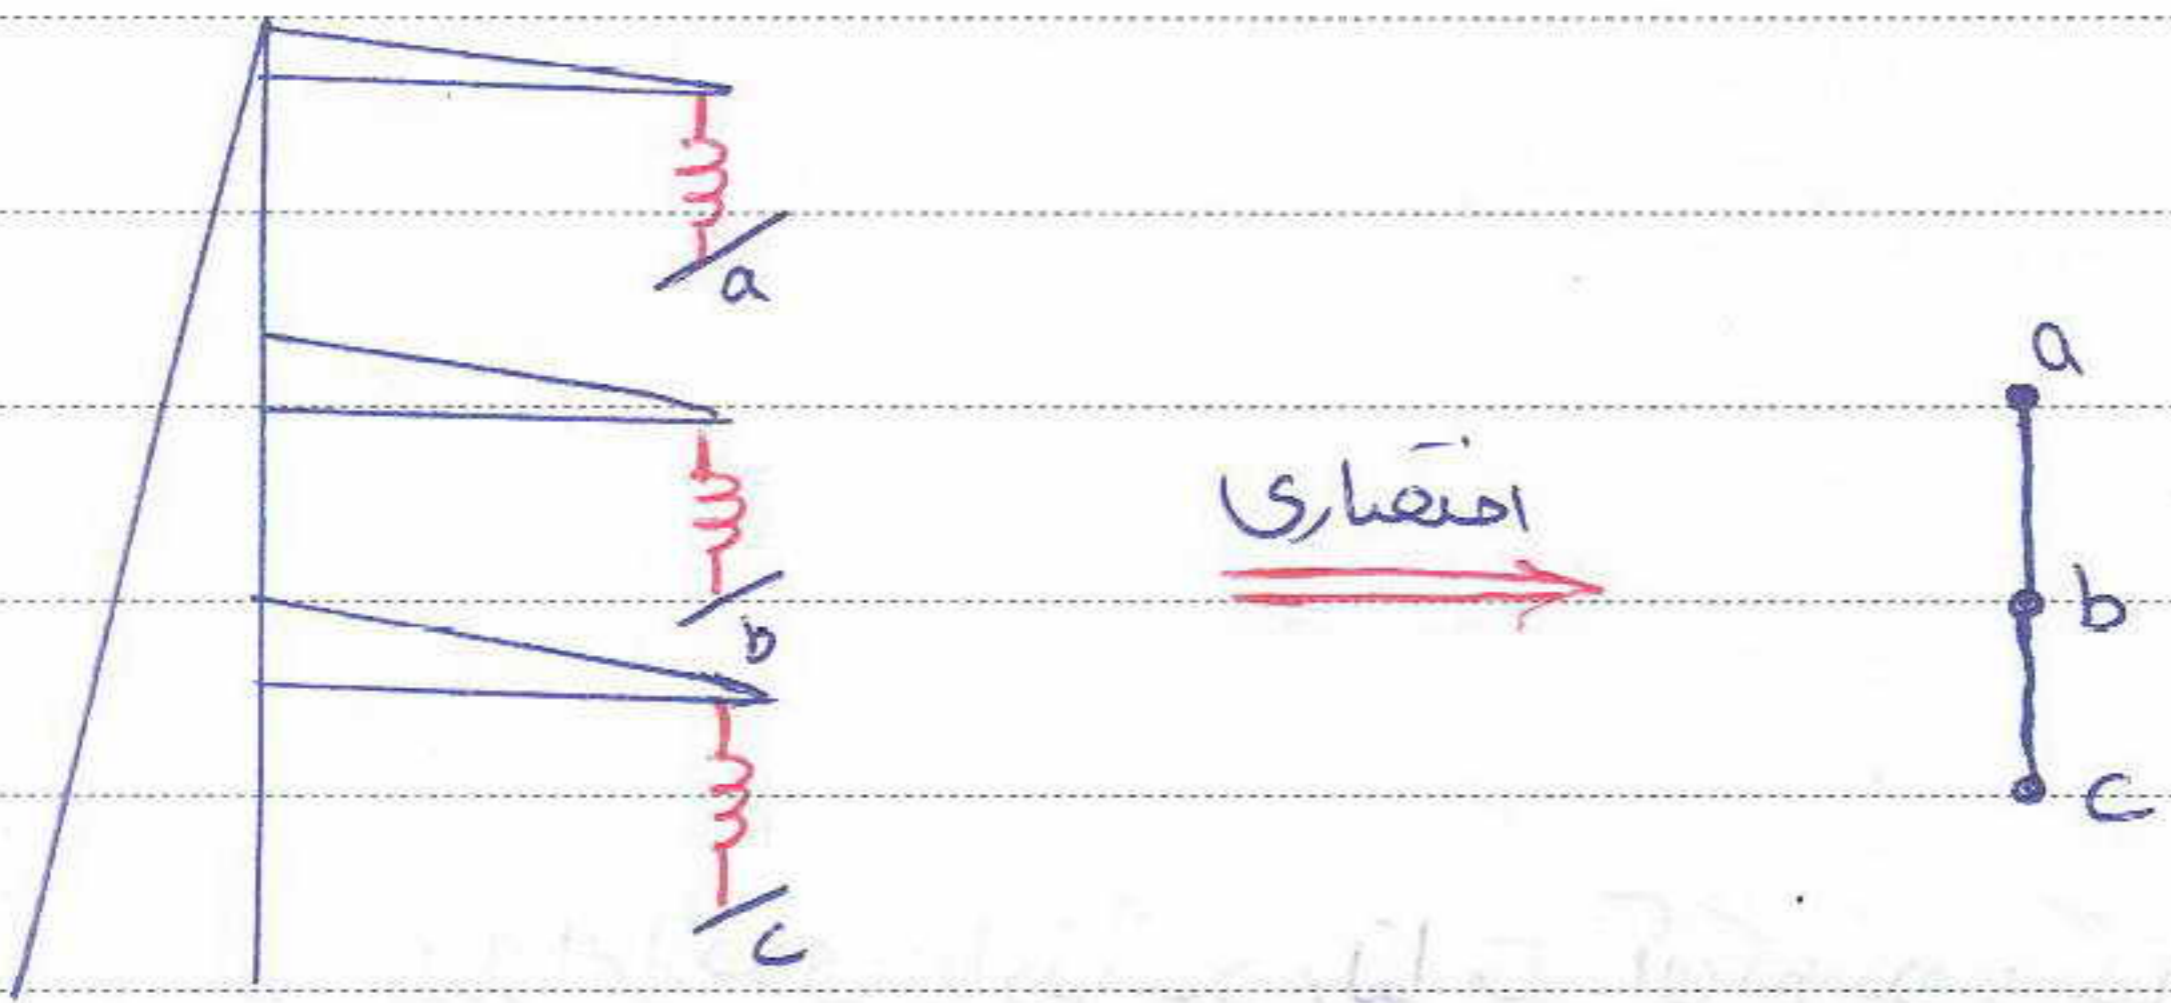 a
b
c
اختصاری
a
b
c